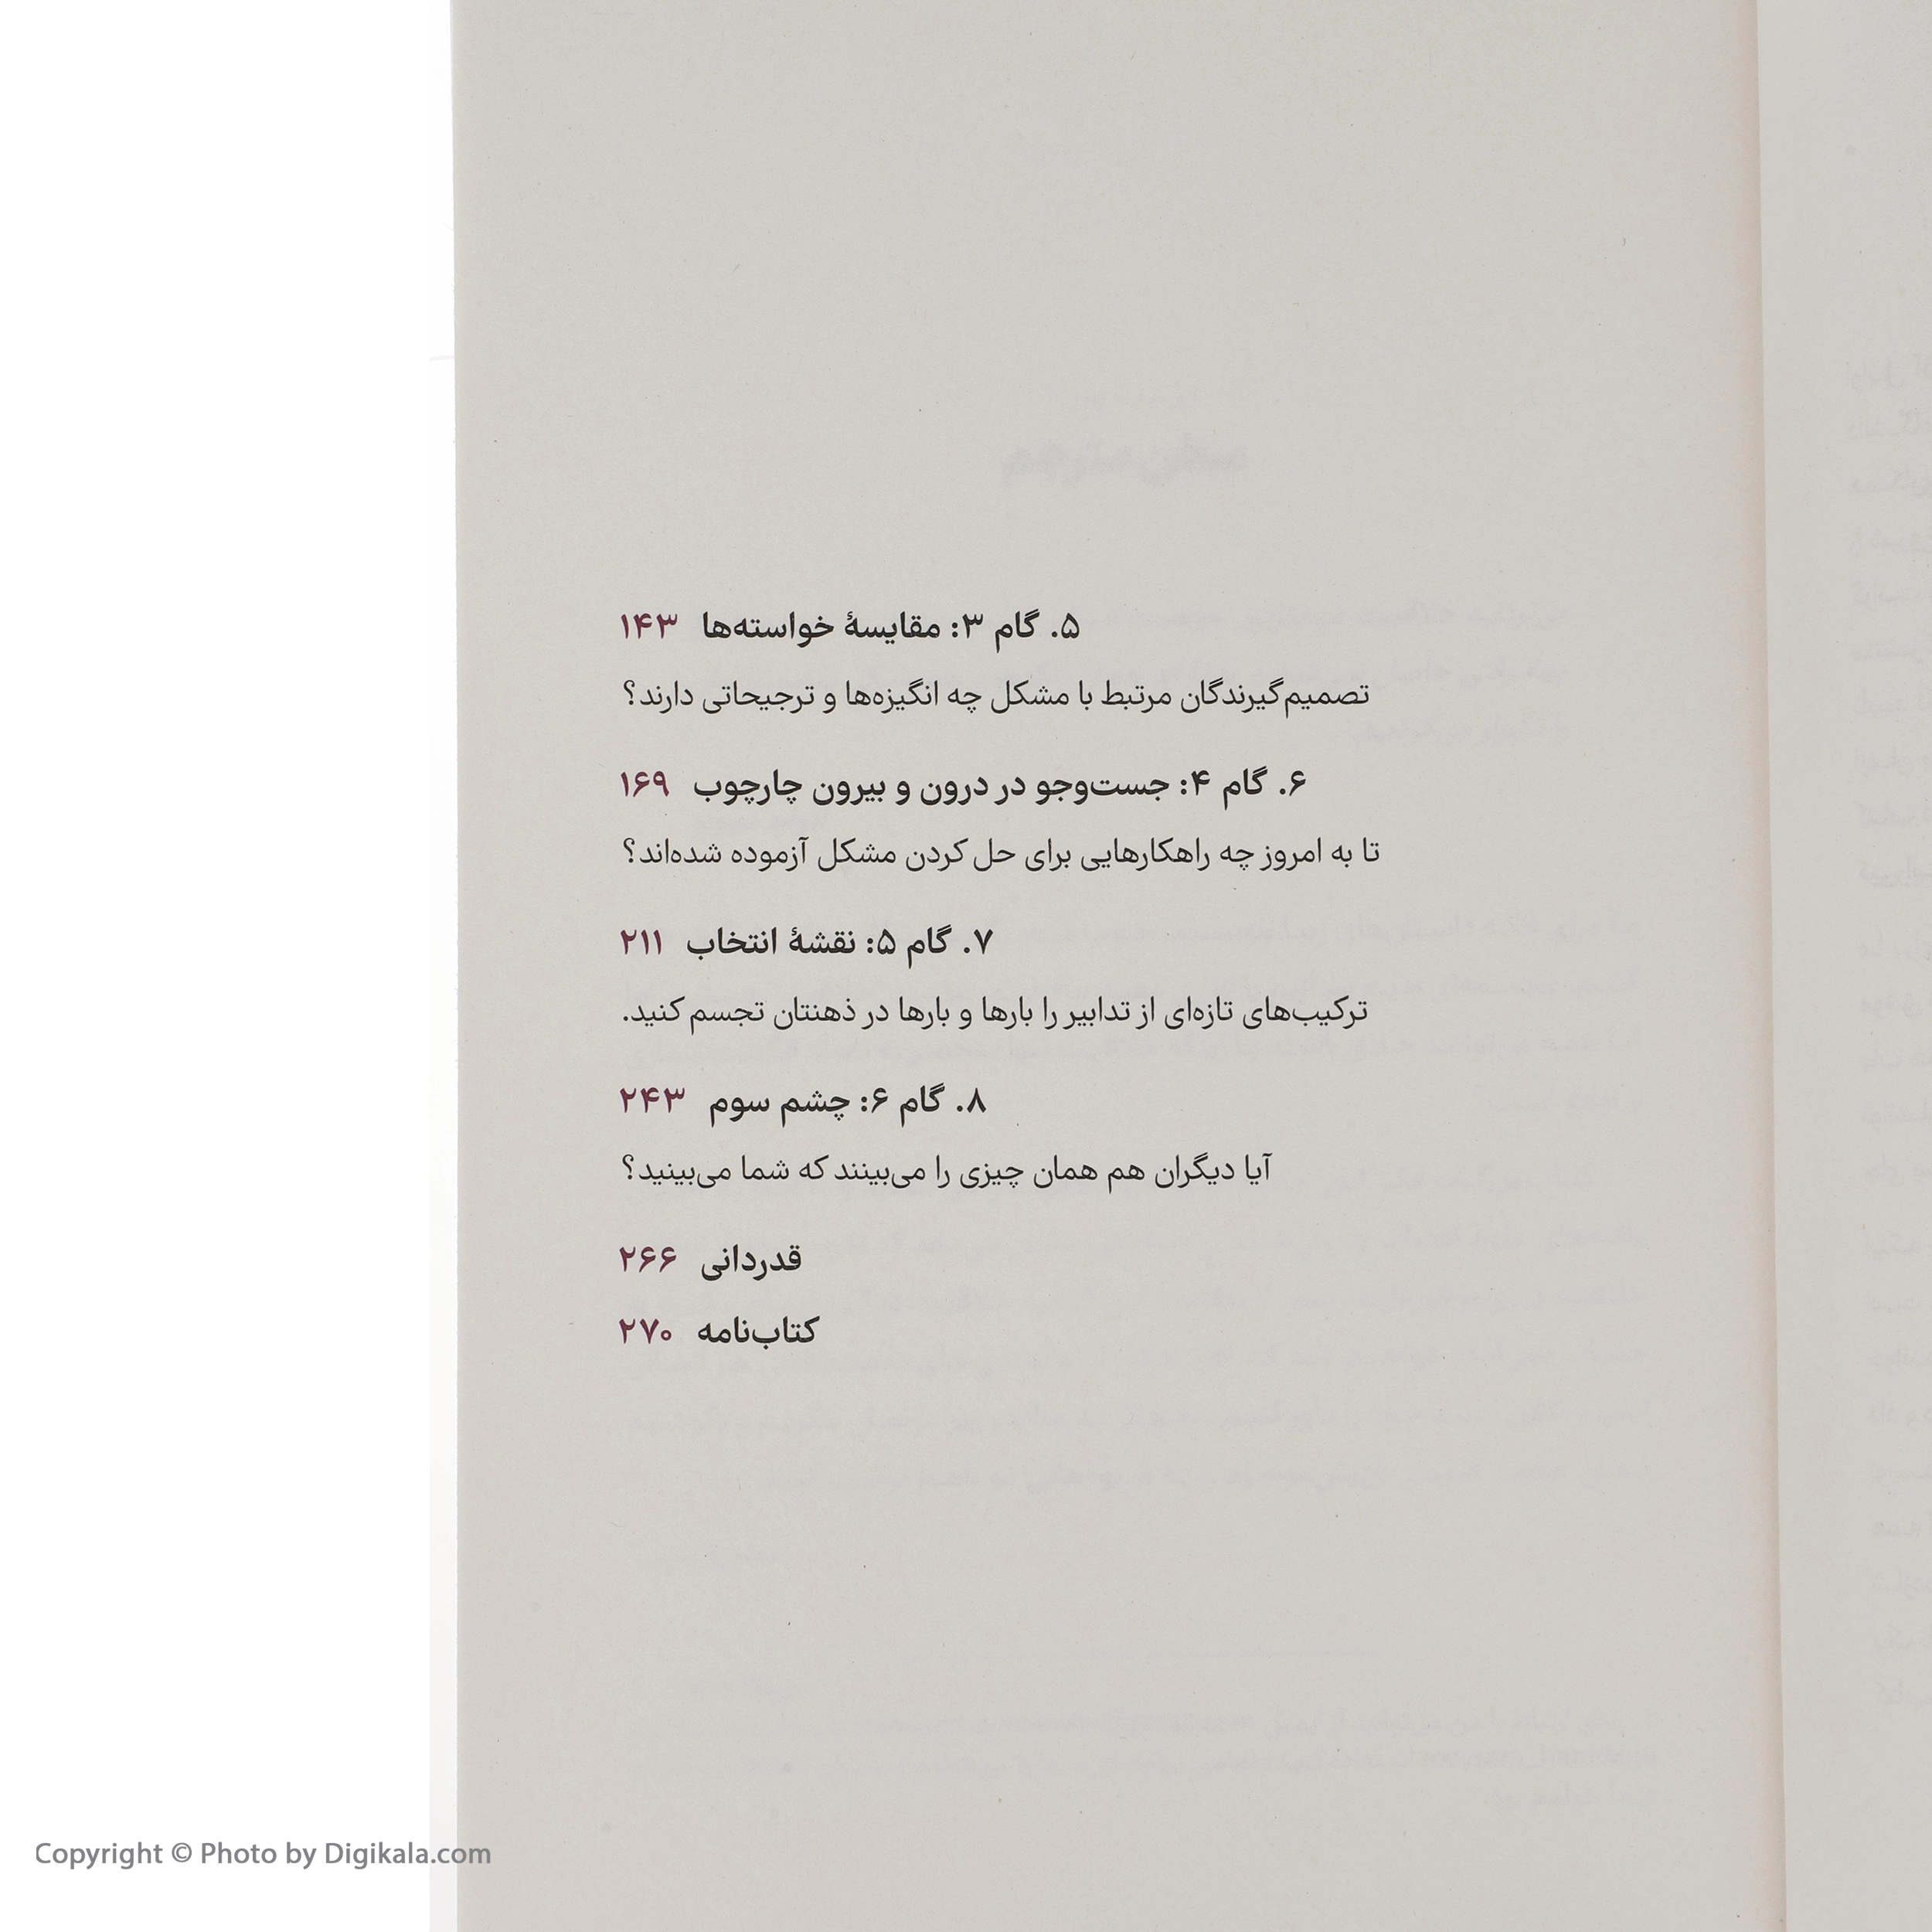 ۵. گام ۳: مقایسهٔ خواسته‌ها ۱۴۳
تصمیم‌گیرندگان مرتبط با مشکل چه انگیزه‌ها و ترجیحاتی دارند؟
۶. گام ۴: جست‌وجو در درون و بیرون چارچوب ۱۶۹
تا به امروز چه راهکارهایی برای حل کردن مشکل آزموده شده‌اند؟
۷. گام ۵: نقشهٔ انتخاب ۲۱۱
ترکیب‌های تازه‌ای از تدابیر را بارها و بارها در ذهنتان تجسم کنید.
۸. گام ۶: چشم سوم ۲۴۳
آیا دیگران هم همان چیزی را می‌بینند که شما می‌بینید؟
قدردانی ۲۶۶
کتاب‌نامه ۲۷۰
Copyright © Photo by Digikala.com